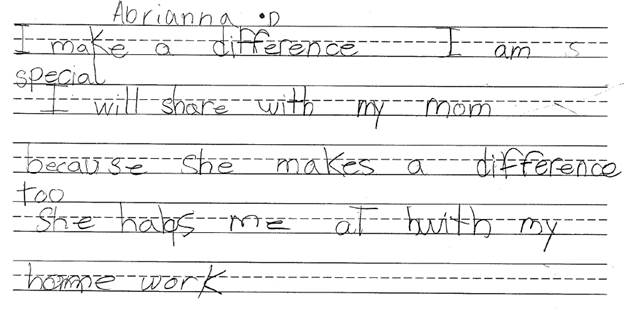 Abrianna .D
I make a difference I am s
special
I will share with my mom
because she makes a difference
too
She habs me at hwith my
home work